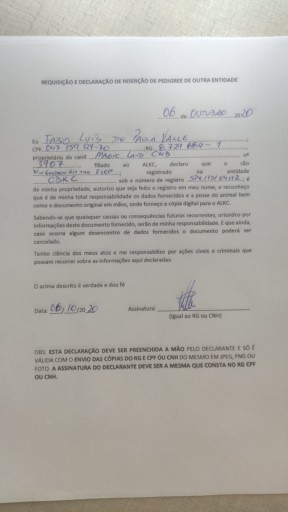 REQUISIÇÃO E DECLARAÇÃO DE INSERÇÃO DE PEDIGREE DE OUTRA ENTIDADE
06 de OUTUBRO 2020
Eu TASSO LUIS DE PAULA VALLE
CPF RG
proprietário do canil MAGIC LAND CWB nº
3907 filiado ao ALKC, declaro que o cão
registrado na entidade
CBKC sob o número de registro e
de minha propriedade, autorizo que seja feito o registro em meu nome, e reconheço
que é de minha total responsabilidade os dados fornecidos e a posse do animal bem
como o documento original em mãos, onde forneço a cópia digital para o ALKC.
Sabendo-se que quaisquer causas ou consequências futuras recorrentes, oriundos por
informações deste documento fornecido, serão de minha responsabilidade. E que ainda,
caso ocorra algum desencontro de dados fornecidos o documento poderá ser
cancelado.
Tenho ciência dos meus atos e me responsabilizo por ações cíveis e criminais que
possam recorrer sobre as informações aqui declaradas.
O acima descrito é verdade e dou fé
Data: 06/10/2020 Assinatura:
(Igual ao RG ou CNH)
OBS: ESTA DECLARAÇÃO DEVE SER PREENCHIDA A MÃO PELO DECLARANTE E SÓ É
VÁLIDA COM O ENVIO DAS CÓPIAS DO RG E CPF OU CNH DO MESMO EM JPEG, PNG OU
FOTO. A ASSINATURA DO DECLARANTE DEVE SER A MESMA QUE CONSTA NO RG CPF
OU CNH.